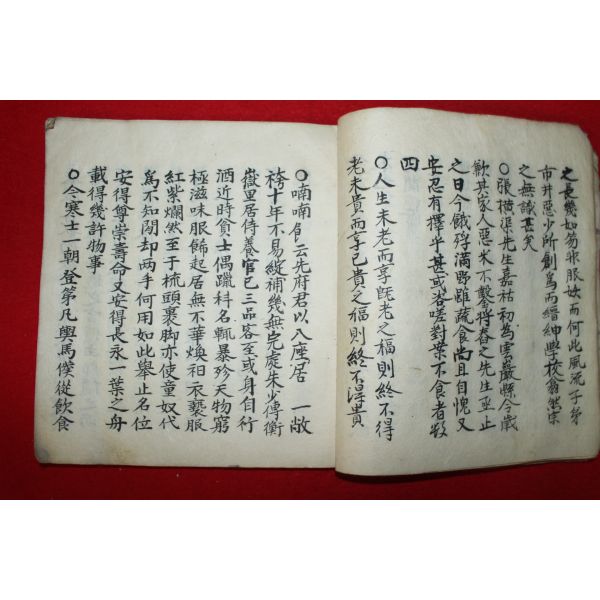 之長幾如芴非服妖而何此風流子第
市井惡少所創爲而縉紳學校翕然宗
之無識甚矣
○張橫渠先生嘉祐初為雲巖縣令歲
歉其家人惡米不鑿將舂之先生亟止
之曰今餓殍滿野雖蔬食尚且自愧又
安忍有擇乎甚或咨嗟對案不食者數
四
○人生未老而享旣老之福則終不得
老未貴而享已貴之福則終不得貴
○喃喃 云先府君以八座居 一敝
袴十年不易綻補幾無完處朱少傅衡
嶽里居侍養官已三品客至或身自行
酒近時貧士偶躐科名輒暴殄天物窮
極滋味服飾起居無不華煥衵衣褻服
紅紫爛然至于梳頭裹脚亦使童奴代
爲不知閑却两手何用如此舉止名位
安得尊崇壽命又安得長永一葉之舟
載得幾許物事
○今寒士一朝登第凡輿馬僕從飮食